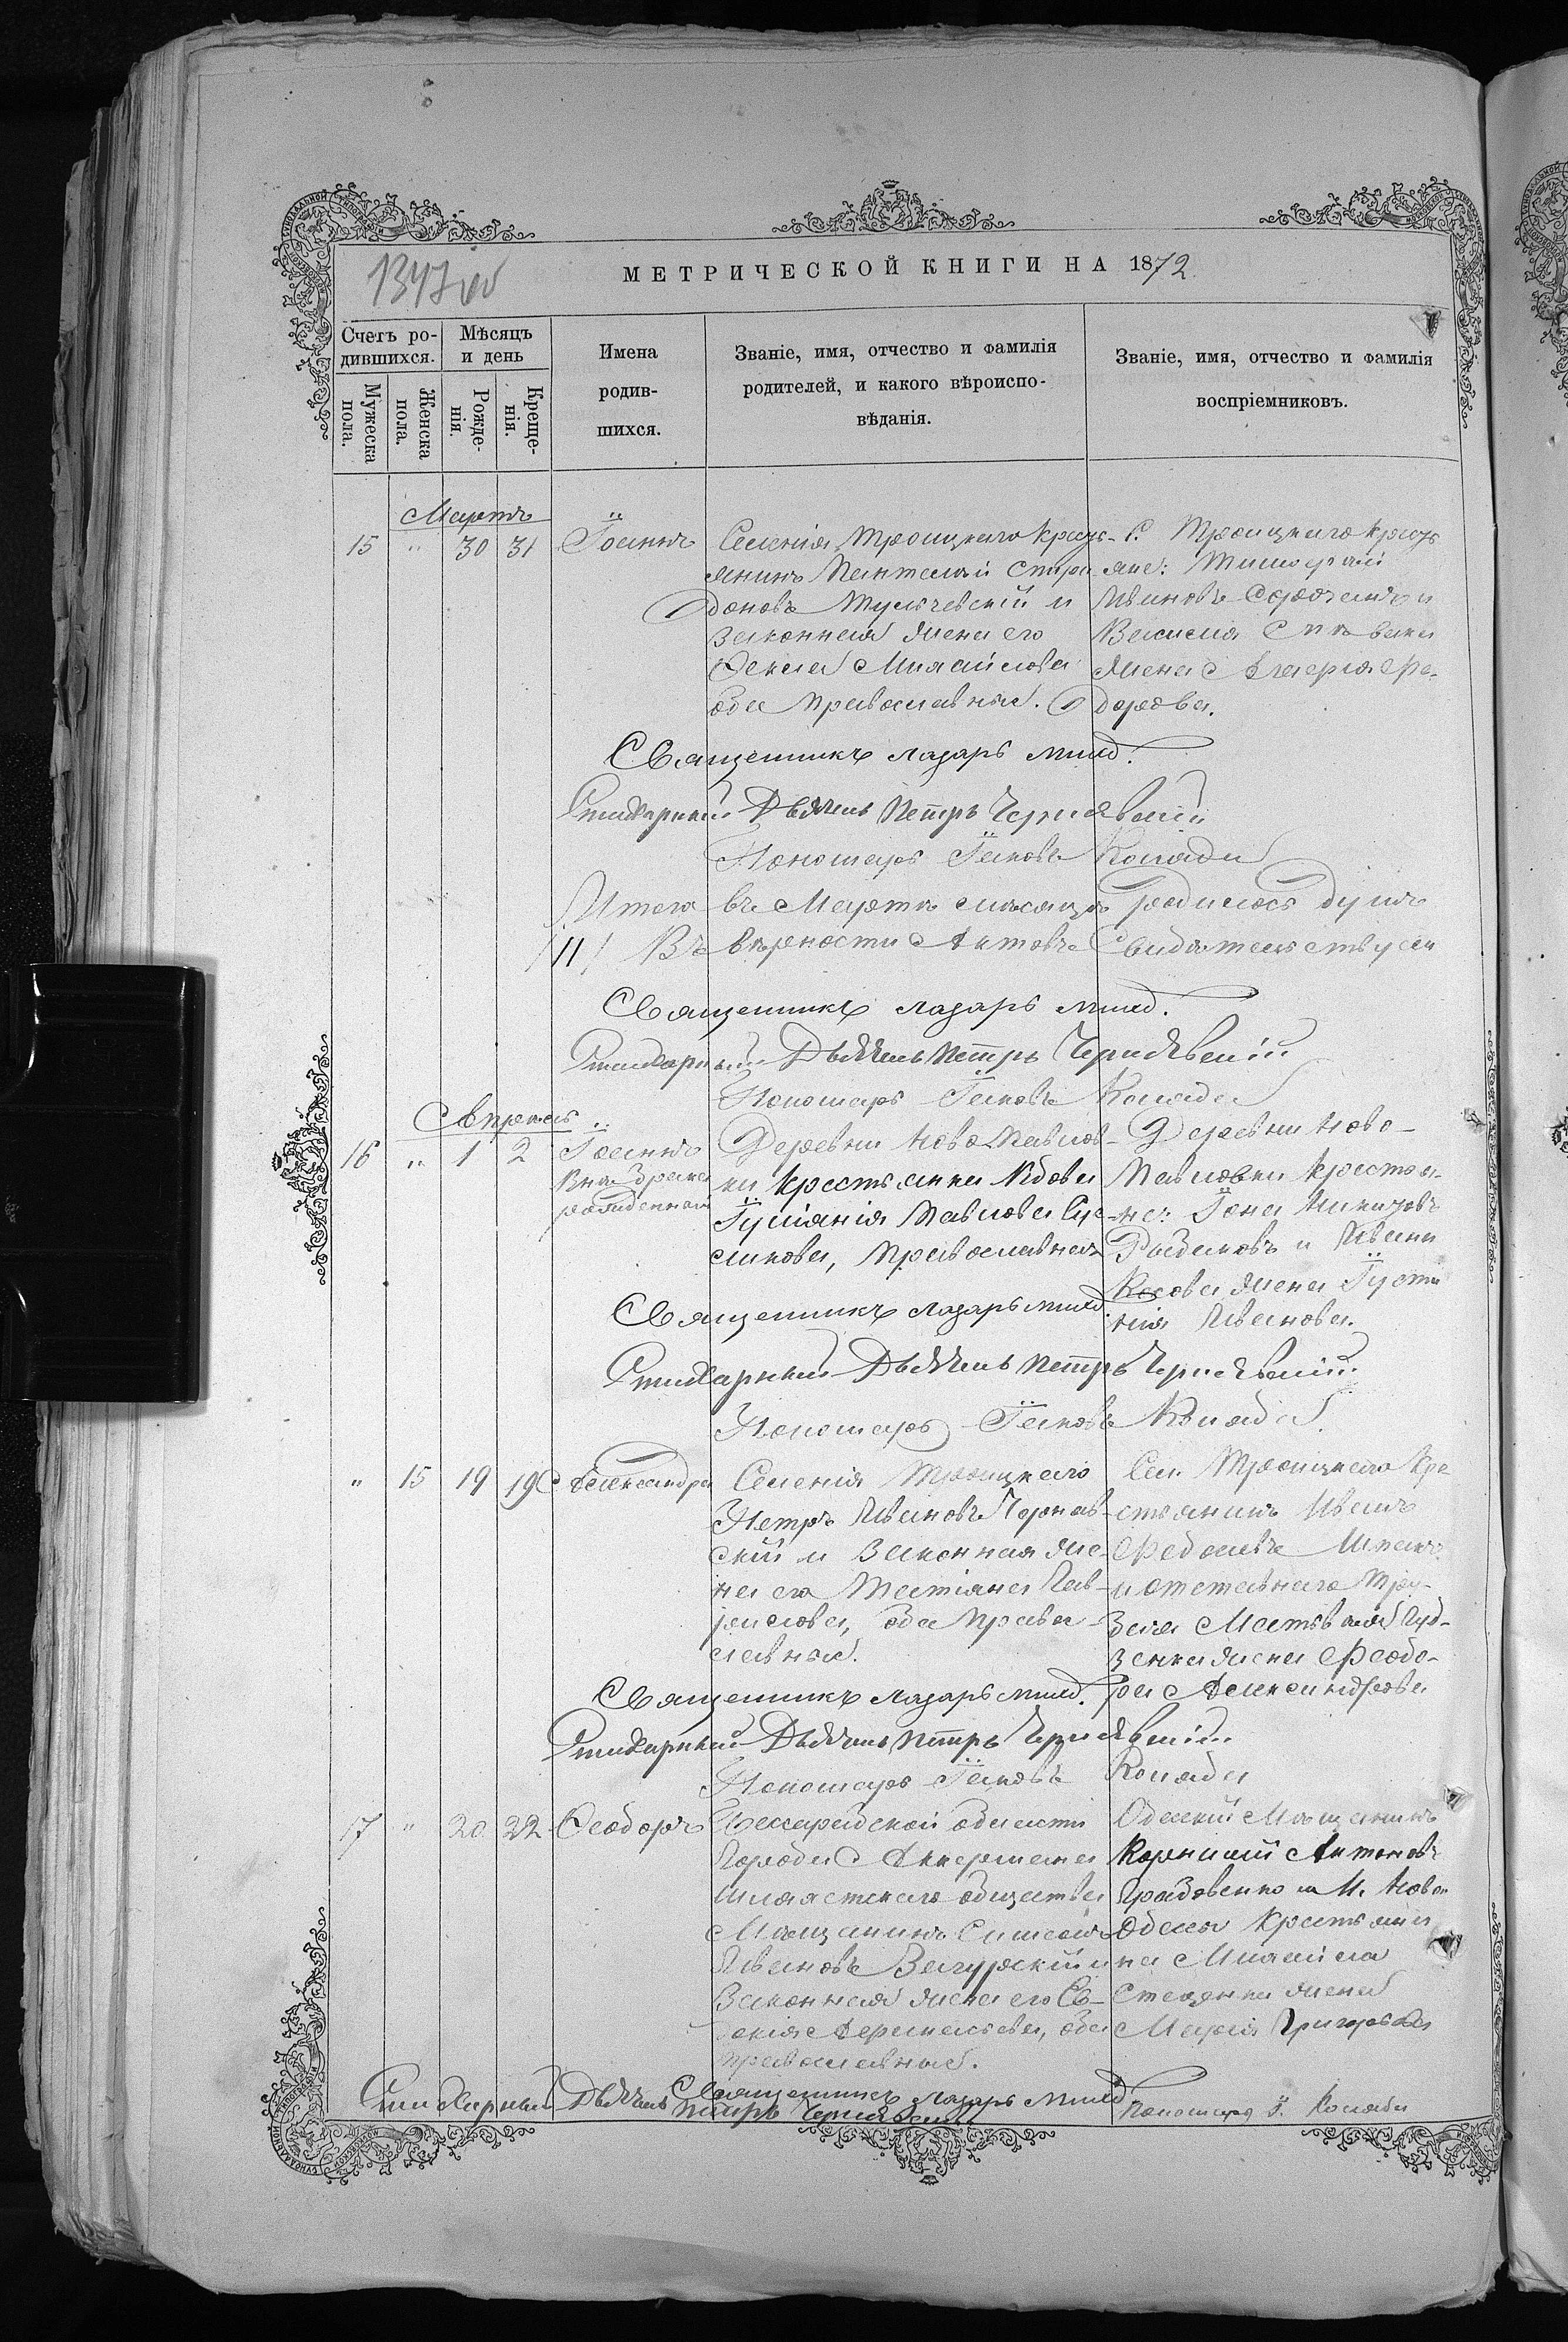 1347 об
МЕТРИЧЕСКОЙ КНИГИ НА 1872
Счетъ ро-
дившихся.
Мѣсяцъ
и день
Мужеска
пола.
Женска
пола.
Рожде-
нія.
Креще-
нія.
Имена
родив-
шихся.
Званіе, имя, отчество и фамилія
родителей, и какого вѣроиспо-
вѣданія.
Званіе, имя, отчество и фамилія
воспріемниковъ.
Мартъ
15 " 30 31 Іоаннъ
Селенія Троицкаго кресть-
янинъ Пантелей Спири-
доновъ Тульчевскій и
законная жена его
Ѳекла Михайлова
оба православные.
С. Троицкаго кресть
яне: Тимофей
Ивановъ и
Василія
жена Агафія Фе-
дорова.
Священникъ Лазарь
Стихарный Дьячекъ Петръ Чернявскій
Пономарь Іаковъ Коляда
Итого въ Мартѣ мѣсяцѣ родилось душъ
/11/ Въ вѣрности Актовъ свидѣтельствуем
Священникъ Лазарь
Стихарный Дьячекъ Петръ Чернявскій
Пономарь Іаковъ Коляда
Апрель
16 " 1 2 Іоаннъ
рожденный
Деревни Новопавлов-
ки крестьянка вдова
Іуліанія Павлова Сус-
ликова, православная
Деревни Ново-
Павловки крестья-
не: Іона
Рыбаковъ и Ивана
Косова жена Іусти
нія Иванова.
Священникъ Лазарь
Стихарный Дьячекъ Петръ Чернявскій
Пономарь Іаковъ Коляда
" 15 19 19 Александра
Селенія Троицкаго
Петръ Ивановъ Чорнав-
скій и законная же-
на его Татіана Гав-
рилова, оба право-
славные.
Сел. Троицкаго кре
стьянинъ Иванъ
и отставнаго
Матвѣя Гуд-
зенка жена Феодо-
ра Александрова
Священникъ Лазарь
Стихарный Дьячекъ Петръ Чернявскій
Пономарь Іаковъ Коляда
17 " 20 22 Ѳеодоръ
Бессарабской области
города Аккермана
общества
Мѣщанинъ Симеонъ
Ивановъ и
законная жена его Ев-
докія оба
православные.
Одесскій Мѣщанинъ
Корнилій Антоновъ
и М. Новой
Одессы крестьяни
на Михаила
Стеценка жена
Марія Григорьева
Священникъ Лазарь
Стихарный Дьячекъ Петръ Чернявскій
Пономарь І. Коляда